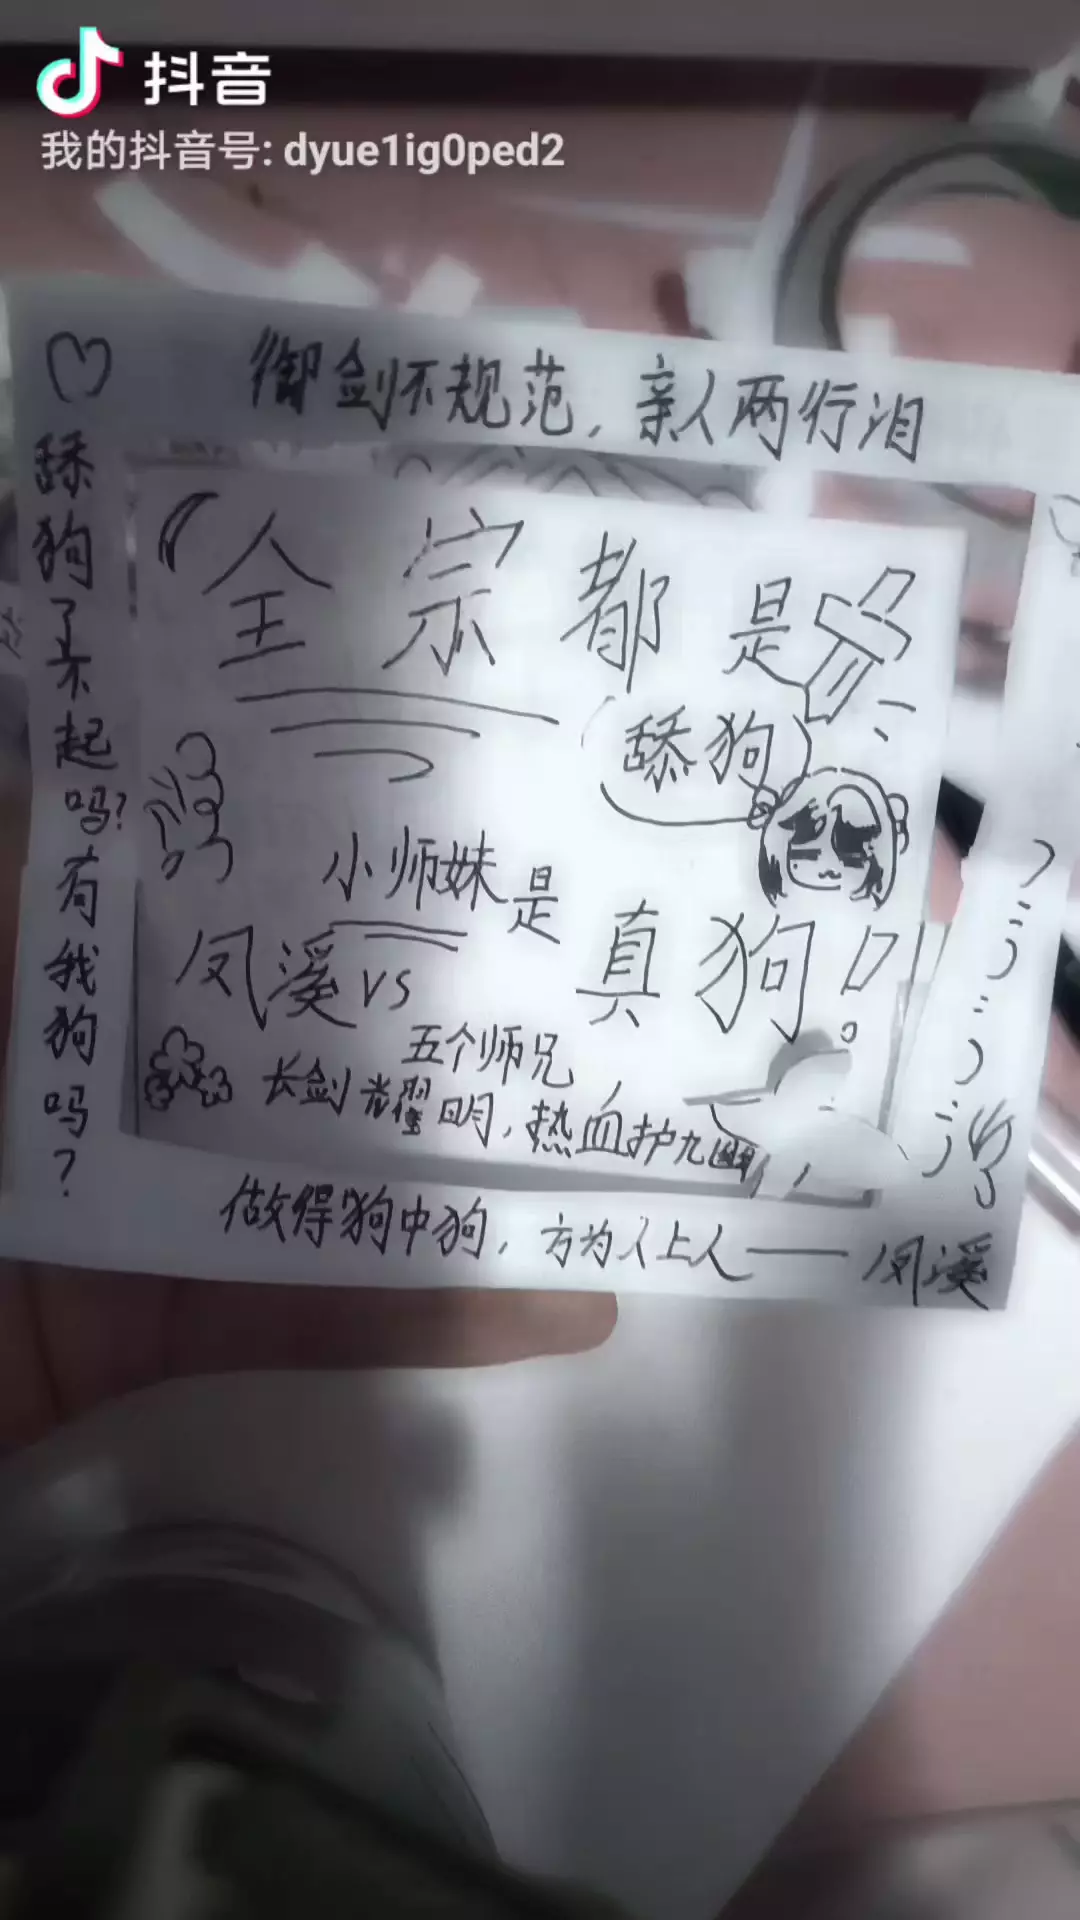 抖音
我的抖音号: dyue1ig0ped2
御剑不规范，亲人两行泪
舔狗了不起吗?有我狗吗?
全宗都是
舔狗
小师妹是
真狗!
凤溪 VS
五个师兄
长剑耀明，热血护九幽
做得狗中狗，方为人上人——凤溪